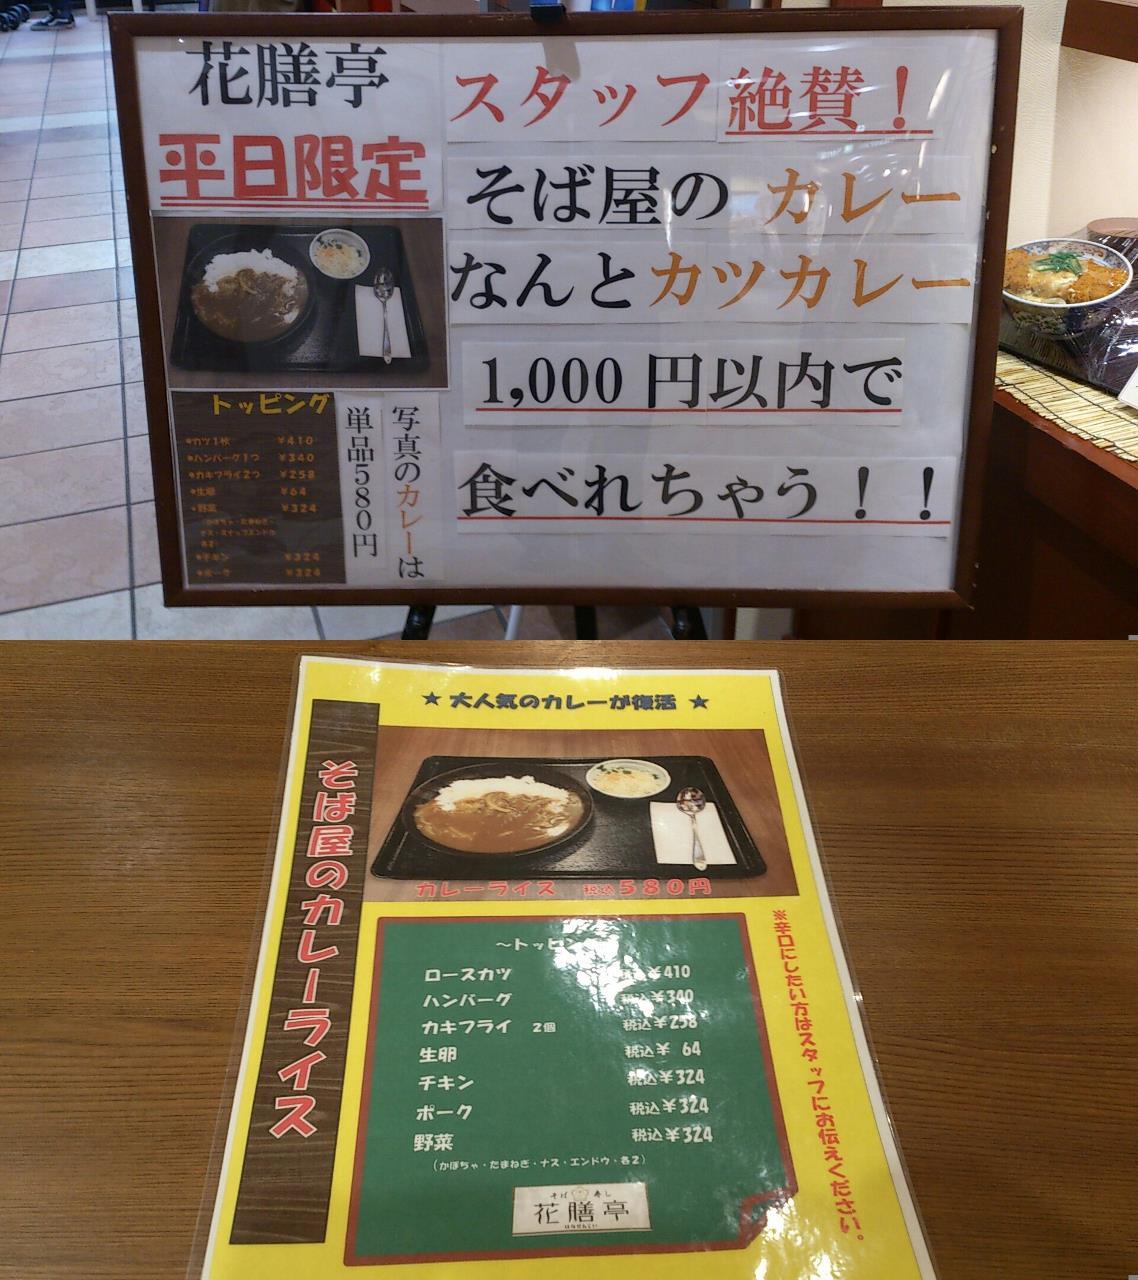 花膳亭
平日限定
スタッフ絶賛！
そば屋の カレー
なんとカツカレー
1,000 円以内で
食べれちゃう！！
写真のカレーは
単品580円
トッピング
●カツ1枚 ￥410
●ハンバーグ1つ ￥340
●カキフライ2つ ￥258
●生卵 ￥64
●野菜 ￥324
（かぼちゃ・たまねぎ・
ナス・スナップエンドウ
各2）
●チキン ￥324
●ポーク ￥324
★ 大人気のカレーが復活 ★
そば屋のカレーライス
カレーライス 税込580円
～トッピン
ロースカツ 税込￥410
ハンバーグ 税込￥340
カキフライ 2個 税込￥258
生卵 税込￥ 64
チキン 税込￥324
ポーク 税込￥324
野菜 税込￥324
（かぼちゃ・たまねぎ・ナス・エンドウ・各2）
※辛口にしたい方はスタッフにお伝えください。
そば 寿し
花膳亭